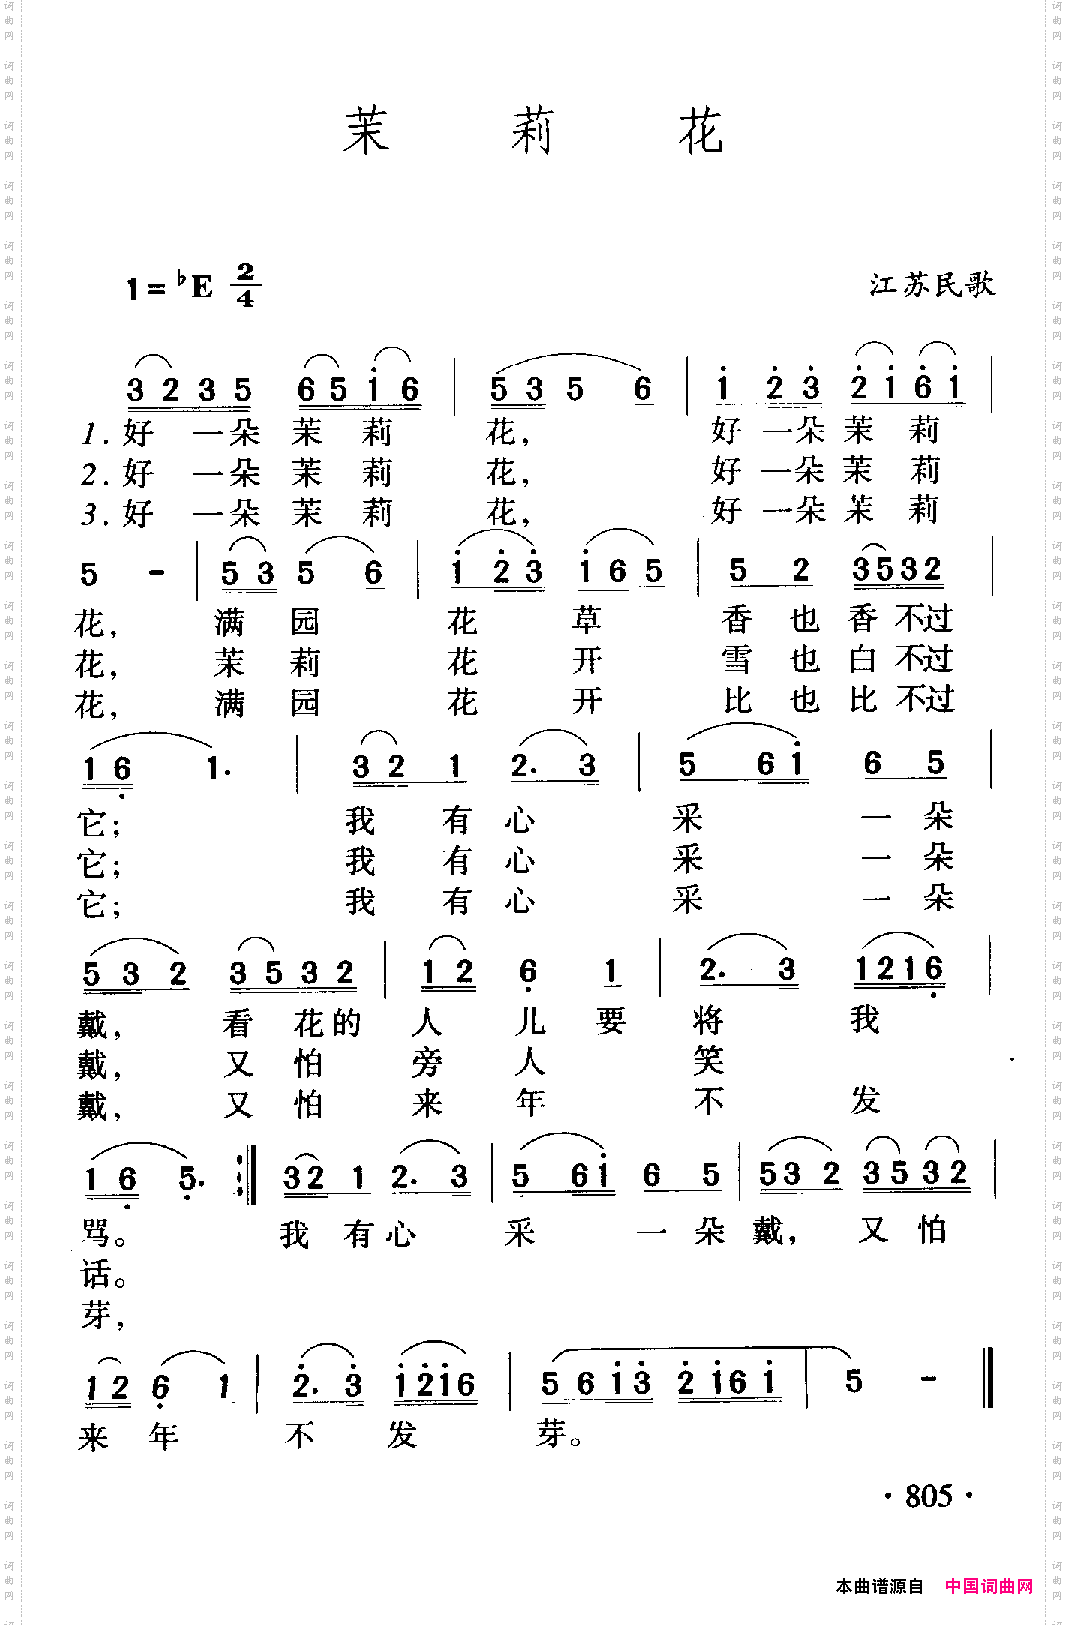 茉 莉 花
1=♭E 2/4
江苏民歌
3 2 3 5 6 5 i 6 | 5 3 5 6 | i 2̇ 3̇ 2̇ i 6 i |
1.好 一朵 茉 莉 花, 好 一朵 茉 莉
2.好 一朵 茉 莉 花, 好 一朵 茉 莉
3.好 一朵 茉 莉 花, 好 一朵 茉 莉
5 - | 5 3 5 6 | i 2̇ 3̇ i 6 5 | 5 2 3532 |
花, 满 园 花 草 香 也 香 不过
花, 茉 莉 花 开 雪 也 白 不过
花, 满 园 花 开 比 也 比 不过
1 6̣ 1. | 3 2 1 2. 3 | 5 6 i 6 5 |
它; 我 有 心 采 一 朵
它; 我 有 心 采 一 朵
它; 我 有 心 采 一 朵
5 3 2 3 5 3 2 | 1 2 6̣ 1 | 2. 3 1 2 1 6̣
戴, 看 花的 人 儿 要 将 我
戴, 又 怕 旁 人 笑
戴, 又 怕 来 年 不 发
1 6̣ 5̣. :| 32 1 2. 3 | 5 6 i 6 5 | 53 2 3532 |
骂。 我 有心 采 一 朵 戴, 又 怕
话。
芽,
1 2 6̣ 1 | 2̇. 3̇ i 2̇ i 6 | 5 6 i 3̇ 2̇ i 6 i | 5 - ‖
来 年 不 发 芽。
·805·
本曲谱源自 中国词曲网